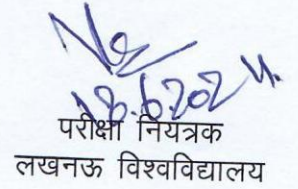 18.6.2024.
परीक्षा नियंत्रक
लखनऊ विश्वविद्यालय